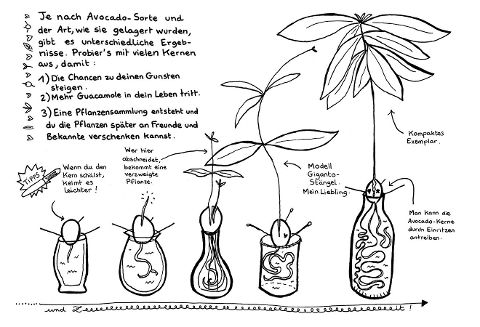 Je nach Avocado-Sorte und
der Art, wie sie gelagert wurden,
gibt es unterschiedliche Ergeb-
nisse. Probier's mit vielen Kernen
aus, damit:
1) Die Chancen zu deinen Gunsten
steigen.
2) Mehr Guacamole in dein Leben tritt.
3) Eine Pflanzensammlung entsteht und
du die Pflanzen später an Freunde und
Bekannte verschenken kannst.
TIPPS
Wenn du den
Kern schälst,
keimt es
leichter!
Wer hier
abschneidet,
bekommt eine
verzweigte
Pflanze.
Modell
Giganto-
Stängel.
Mein Liebling.
Kompaktes
Exemplar.
Man kann die
Avocado-Kerne
durch Einritzen
antreiben.
und